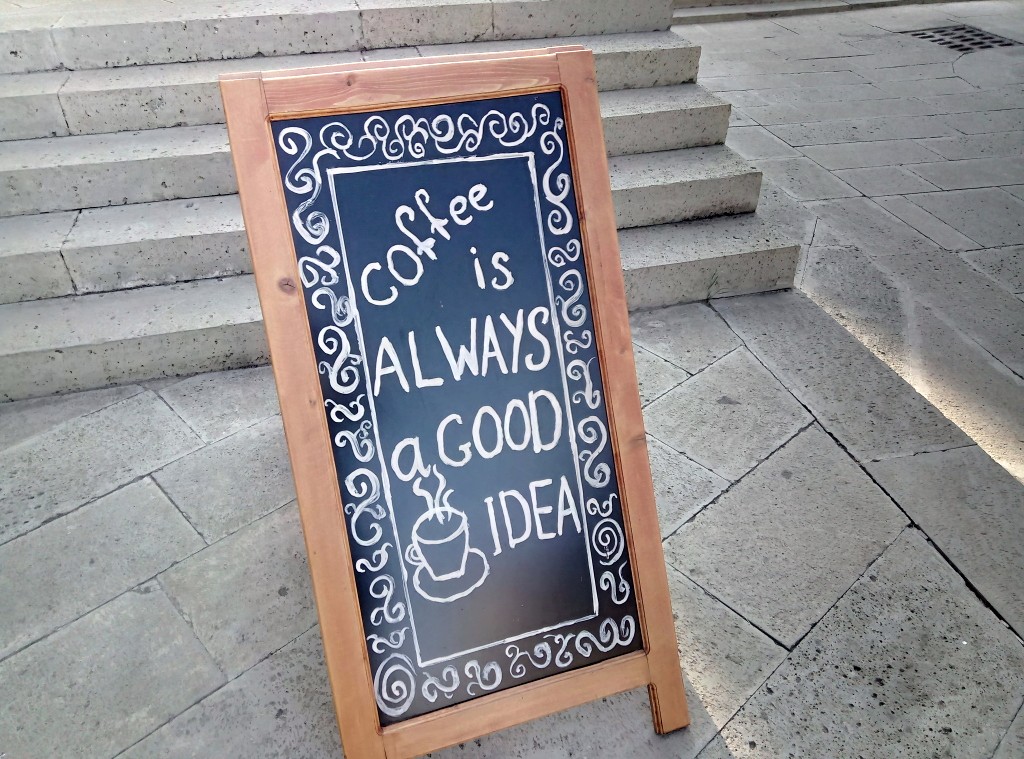 coffee
is
ALWAYS
a GOOD
IDEA